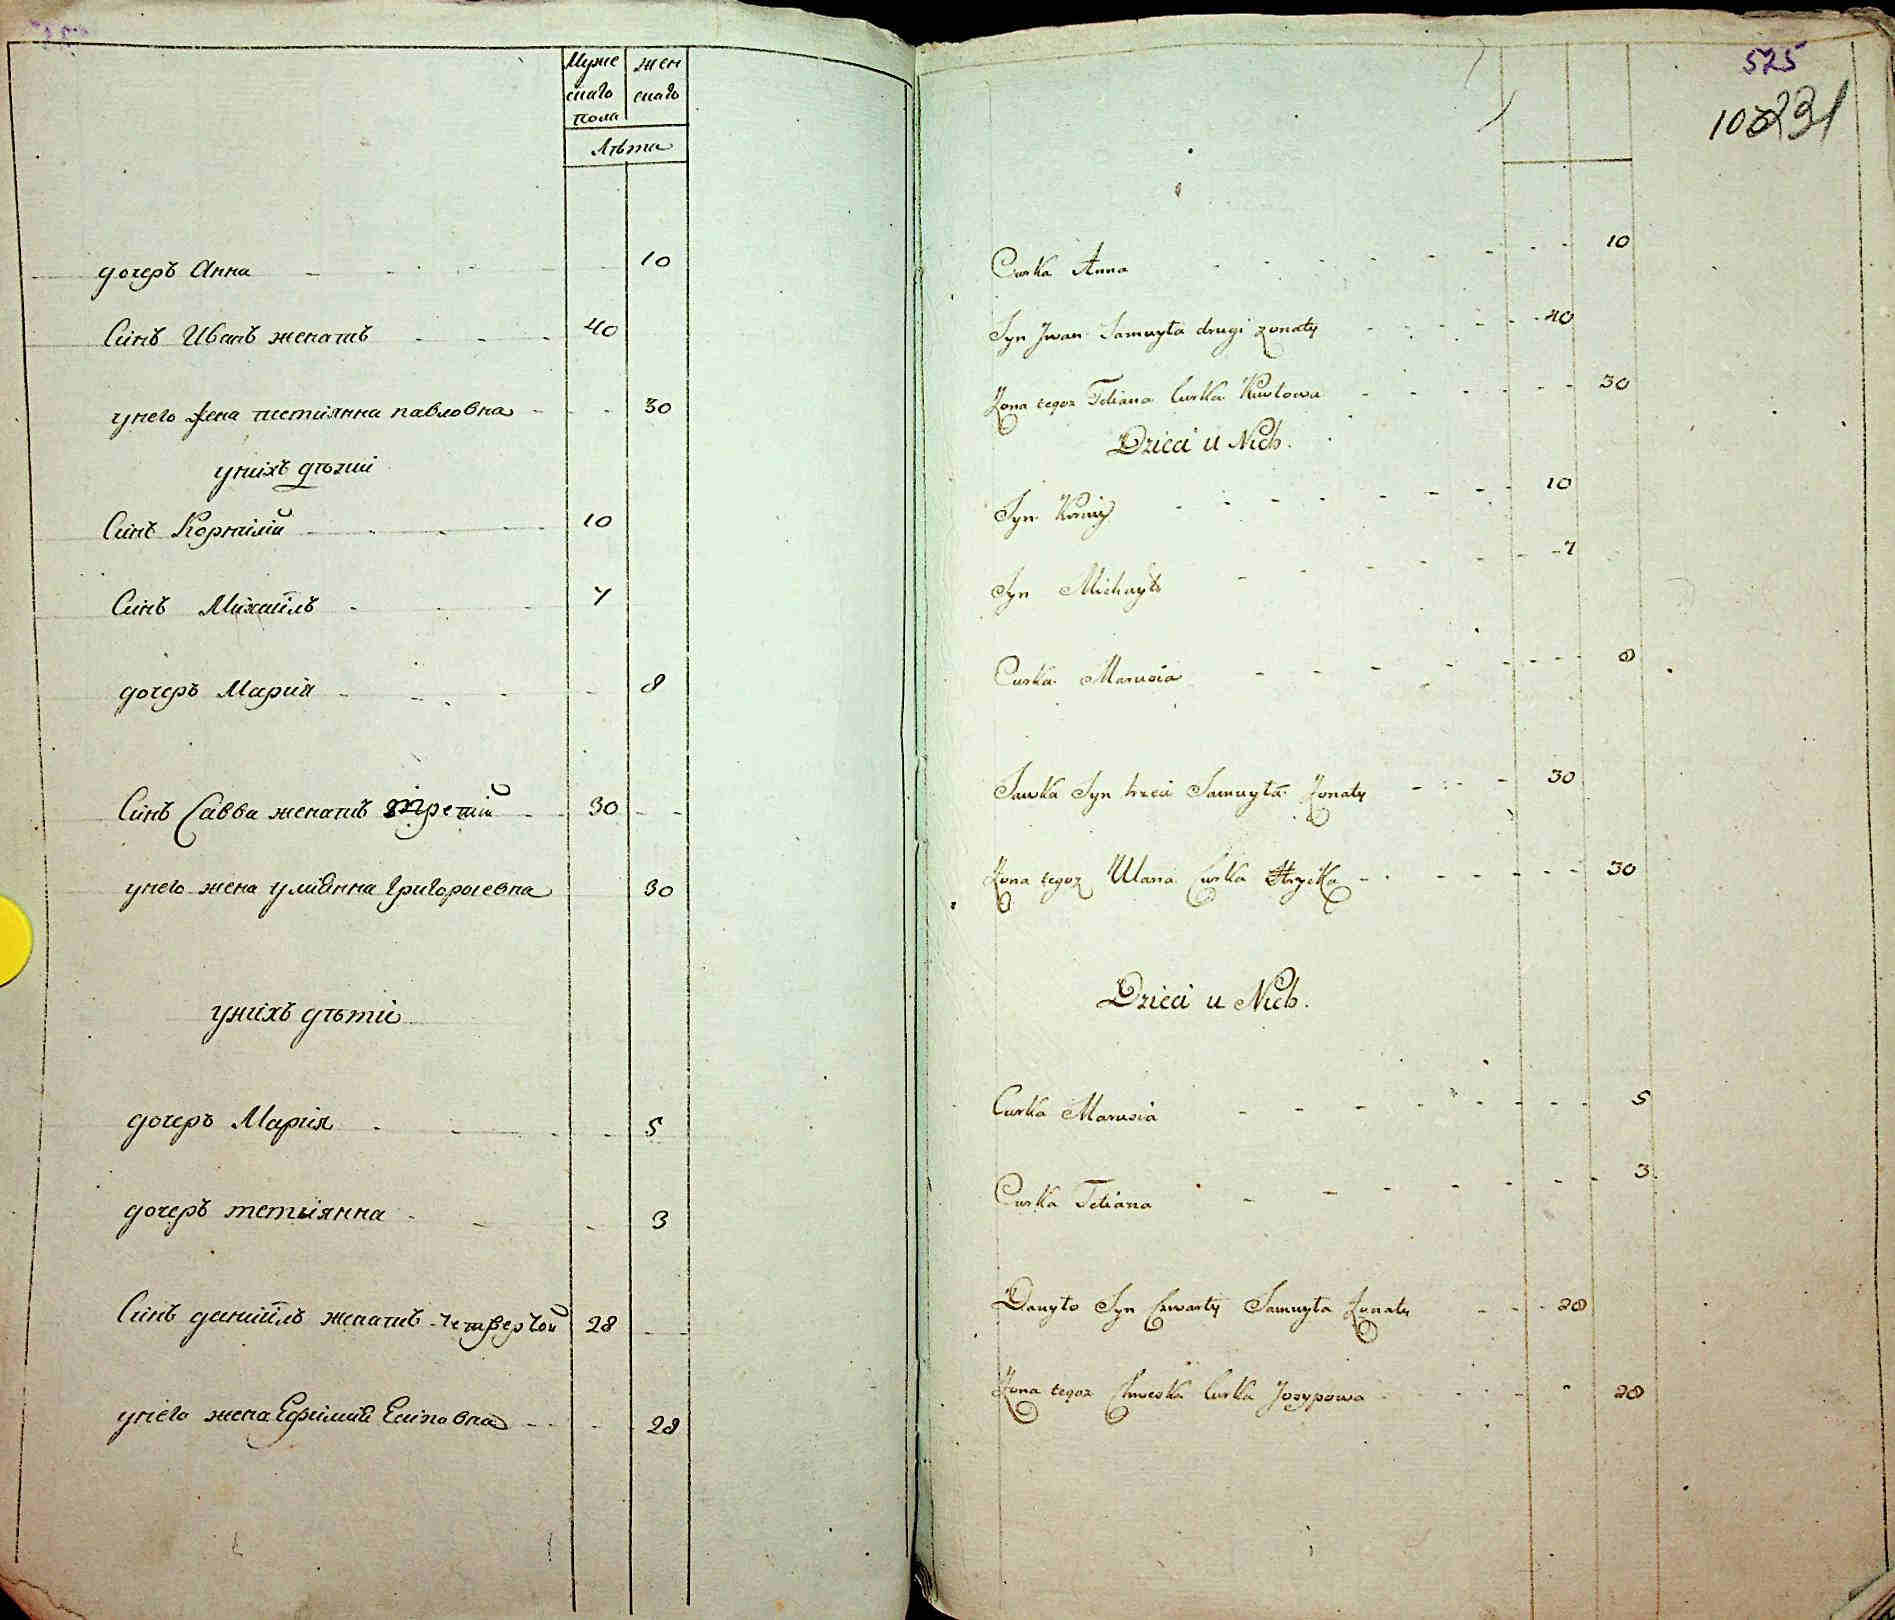 Муже жен
скаго скаго
пола
Лѣта
дочеръ Анна 10
Синъ Иванъ женатъ 40
унего жена тетиянна павловна 30
унихъ дѣтии
Синъ Корнилий 10
Синъ Михаилъ 7
дочеръ Мария 8
Синъ Савва женатъ третий 30
унего жена улиянна Григориевна 30
унихъ дѣтии
дочеръ Мария 5
дочеръ тетиянна 3
Синъ даниилъ женатъ четвертой 28
унего жена Ефимия Есиповна 28
575
231
Curka Anna 10
Syn Jwan Samuyła drugi zonaty 40
Zona tegoz Tetiana Curka Pawłowa 30
Dzieci u Nich.
Syn 10
Syn Michayło 7
Curka Marusia 8
Sawka Syn trzeci Samuyła Zonaty 30
Zona tegoz Ulana Curka Hrycka 30
Dzieci u Nich.
Curka Marusia 5
Curka Tetiana 3
Danyło Syn Czwarty Samuyła Zonaty 28
Zona tegoz Chweska Curka Jozypowa 28